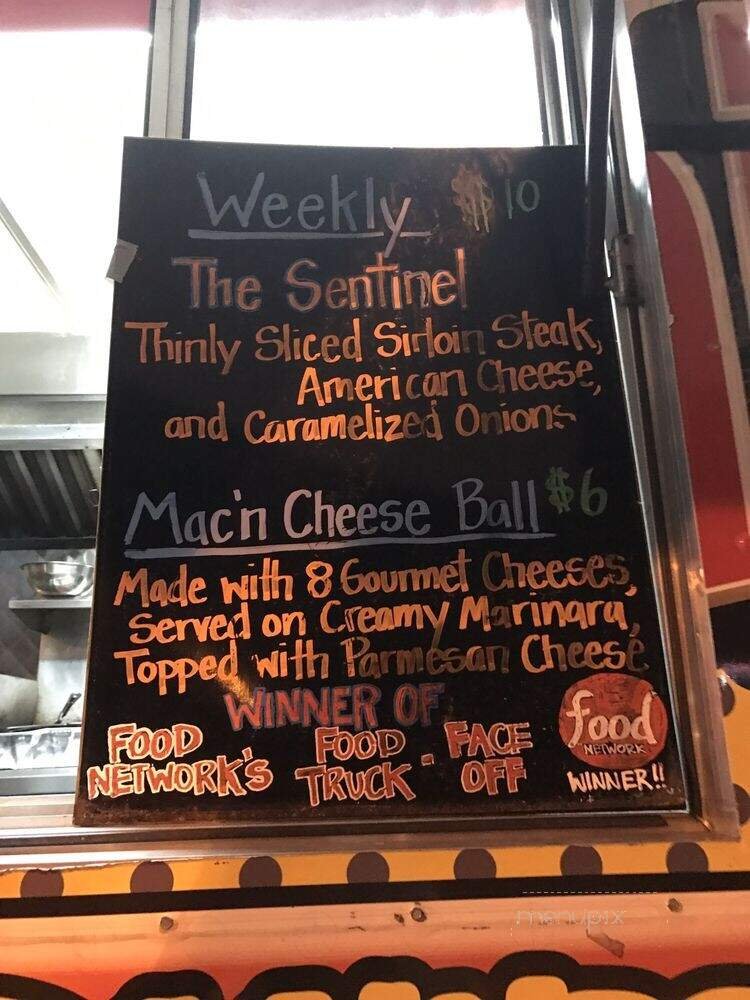 Weekly $10
The Sentinel
Thinly Sliced Sirloin Steak,
American Cheese,
and Caramelized Onions
Mac'n Cheese Ball $6
Made with 8 Gourmet Cheeses,
Served on Creamy Marinara,
Topped with Parmesan Cheese
WINNER OF
FOOD NETWORK'S FOOD TRUCK - FACE OFF
food
NETWORK
WINNER!!
menupix